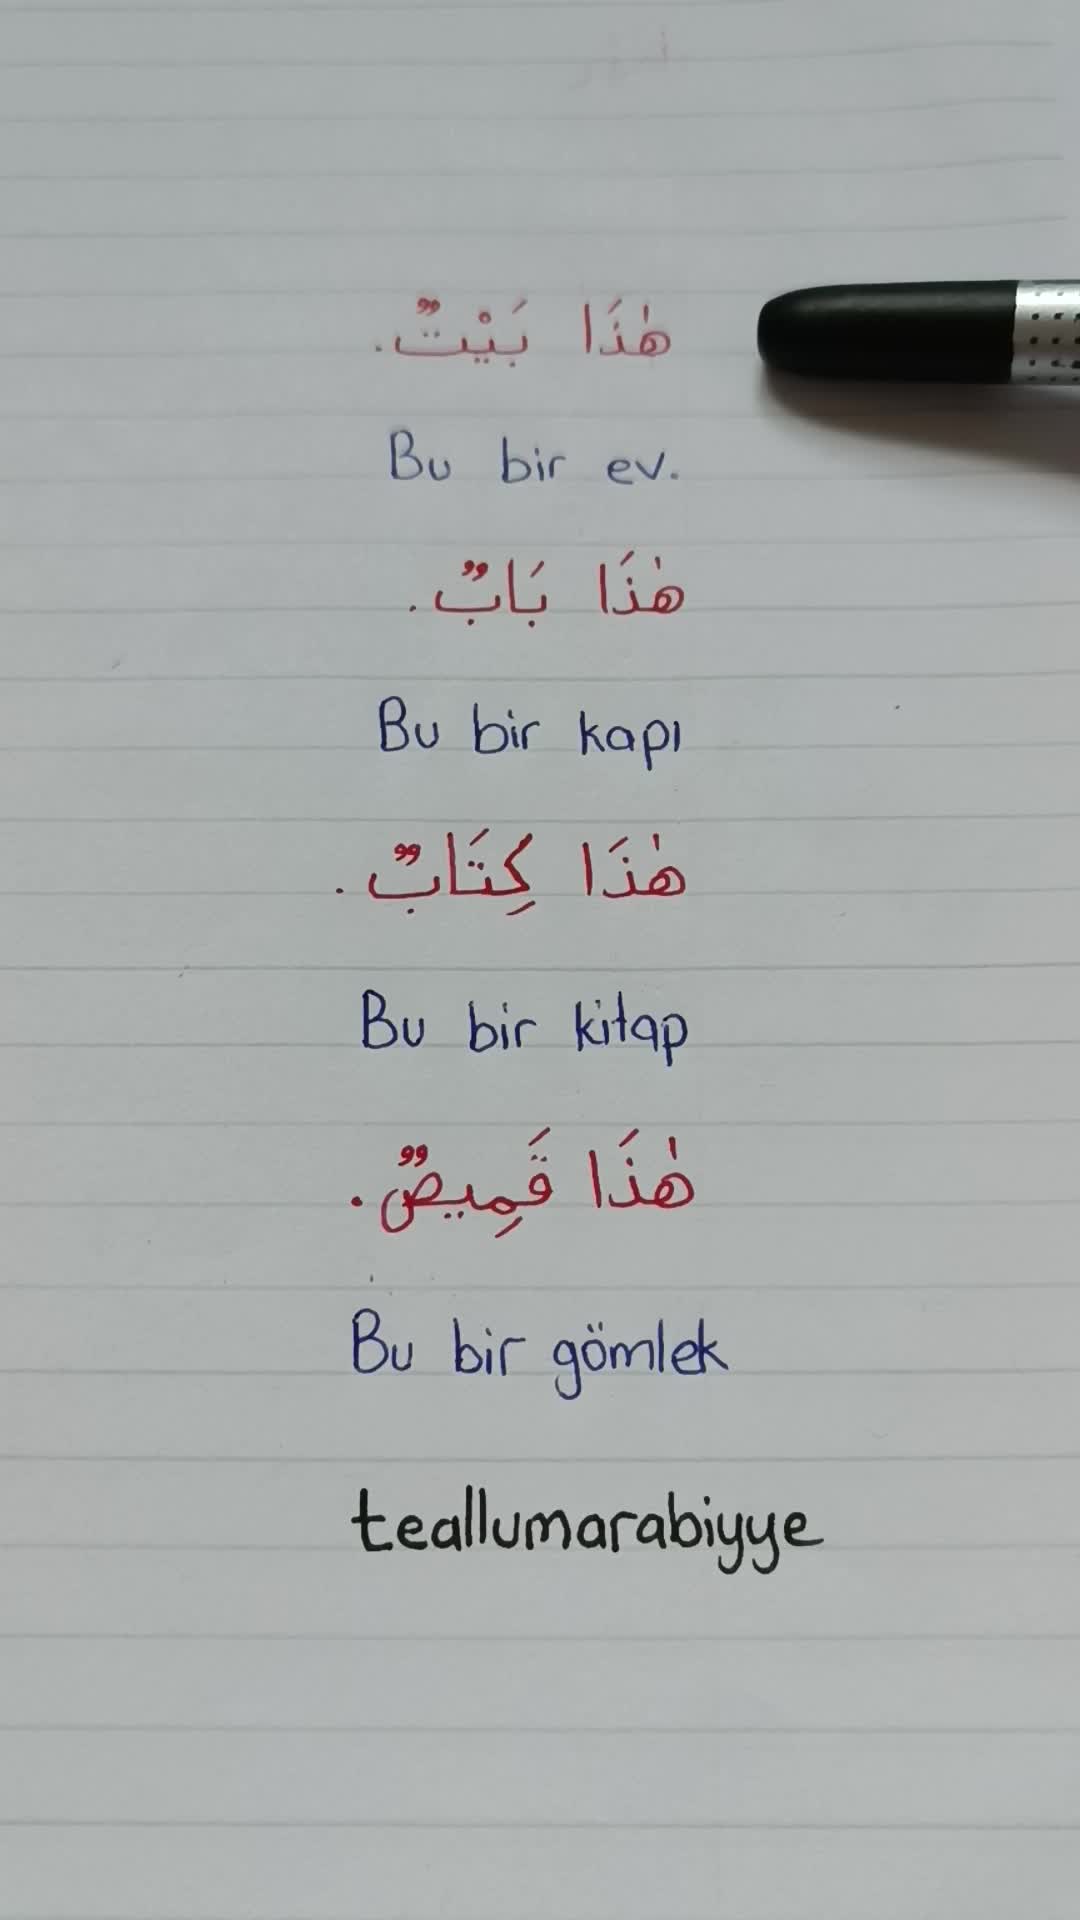 هٰذَا بَيْتٌ.
Bu bir ev.
هٰذَا بَابٌ.
Bu bir kapı
هٰذَا كِتَابٌ.
Bu bir kitap
هٰذَا قَمِيصٌ.
Bu bir gömlek
teallumarabiyye